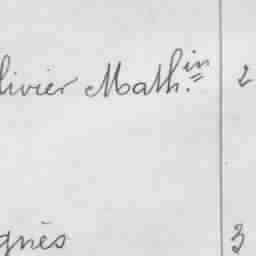 livier Math.in 2
gnès 3